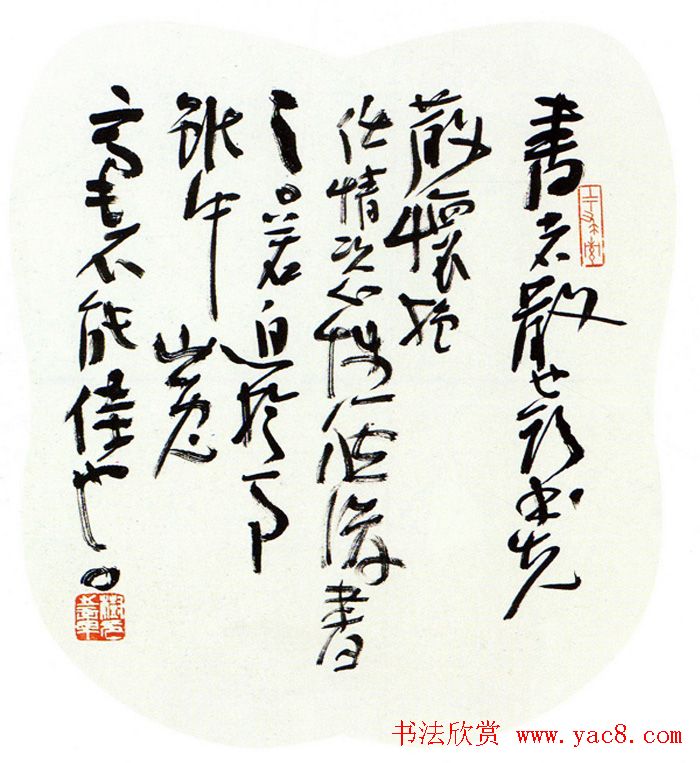 書者散也欲書先
散懷抱
任情恣性然後書
之。若迫於事
雖中山兔
毫不能佳也。
书法欣赏 www.yac8.com